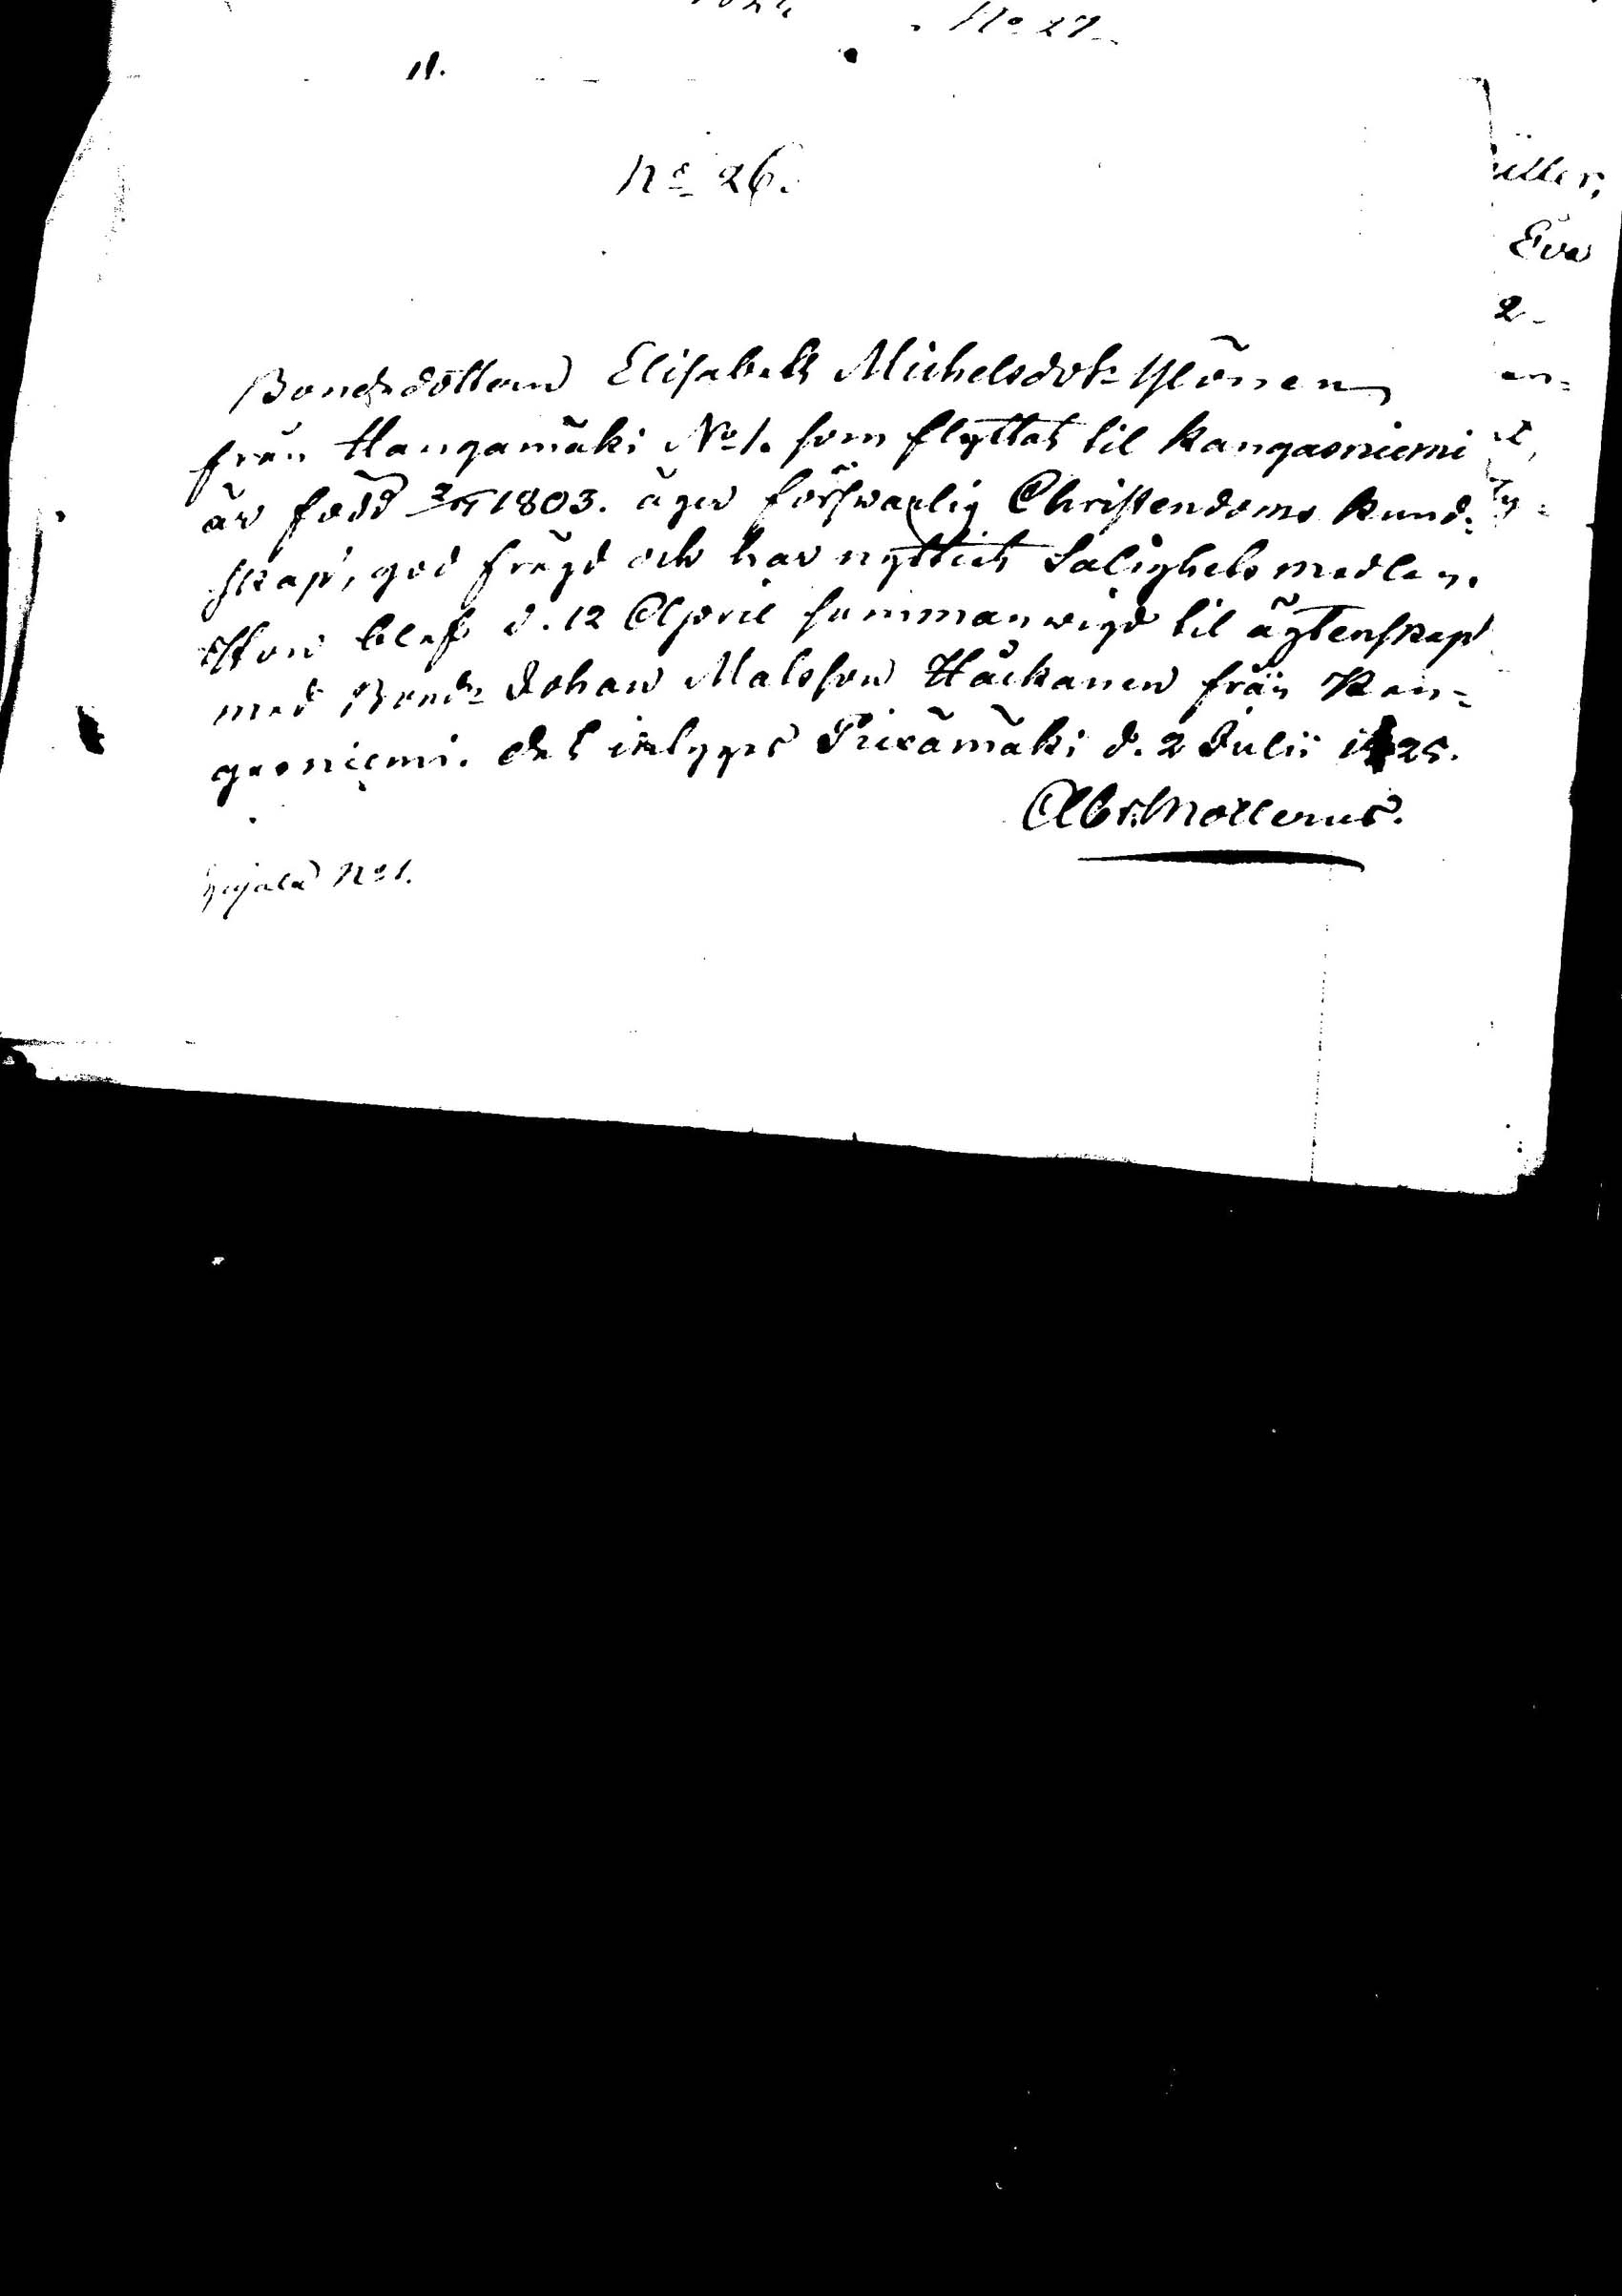 No 27.
11.
No 26.
Bondedottern Elisabeth Michelsdotr Ylönen
från Hangamäki No 1. som flyttat til Kangasniemi
är född 1803. äger förswarlig Christendoms kund-
skap, god frägd och har nyttjat Salighets medlen.
Hon blef d. 12 April sammanwigd til ägtenskap
med Bond: Johan Matsson Häckanen från Kan-
gasniemi. Det intygas Piexämäki d. 2 Julii 1825.
Abr. Molerus.
No 1.
Eva
2